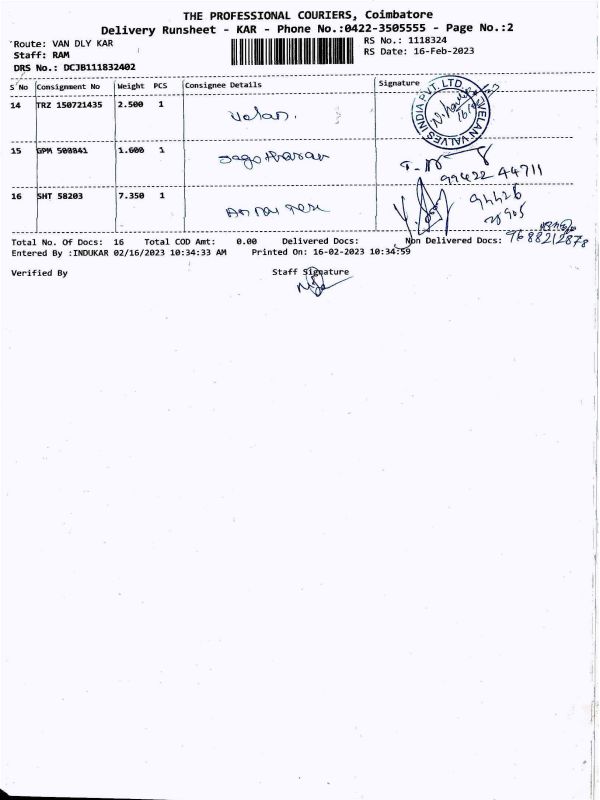 THE PROFESSIONAL COURIERS, Coimbatore
Delivery Runsheet - KAR - Phone No.:0422-3505555 - Page No.:2
Route: VAN DLY KAR
RS No.: 1118324
Staff: RAM
RS Date: 16-Feb-2023
DRS No.: DCJB111832402
S No Consignment No Weight PCS Consignee Details Signature
14 TRZ 150721435 2.500 1 Velan.
VELAN VALVES INDIA PVT. LTD
15 GPM 500841 1.600 1
99422 44711
16 SHT 58203 7.350 1
94426
9688212878
Total No. Of Docs: 16 Total COD Amt: 0.00 Delivered Docs: Non Delivered Docs:
Entered By :INDUKAR 02/16/2023 10:34:33 AM Printed On: 16-02-2023 10:34:59
Verified By Staff Signature